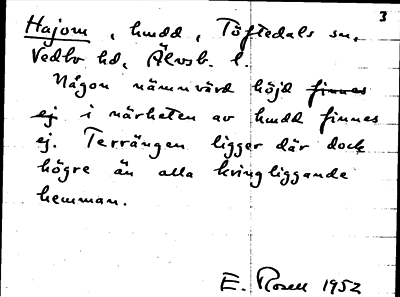 3
Hajom, hmdd, Töftedals sn,
Vedbo hd, Älvsb. l.
Någon nämnvärd höjd finnes
ej i närheten av hmdd finnes
ej. Terrängen ligger där dock
högre än alla kringliggande
hemman.
E. Rosell 1952